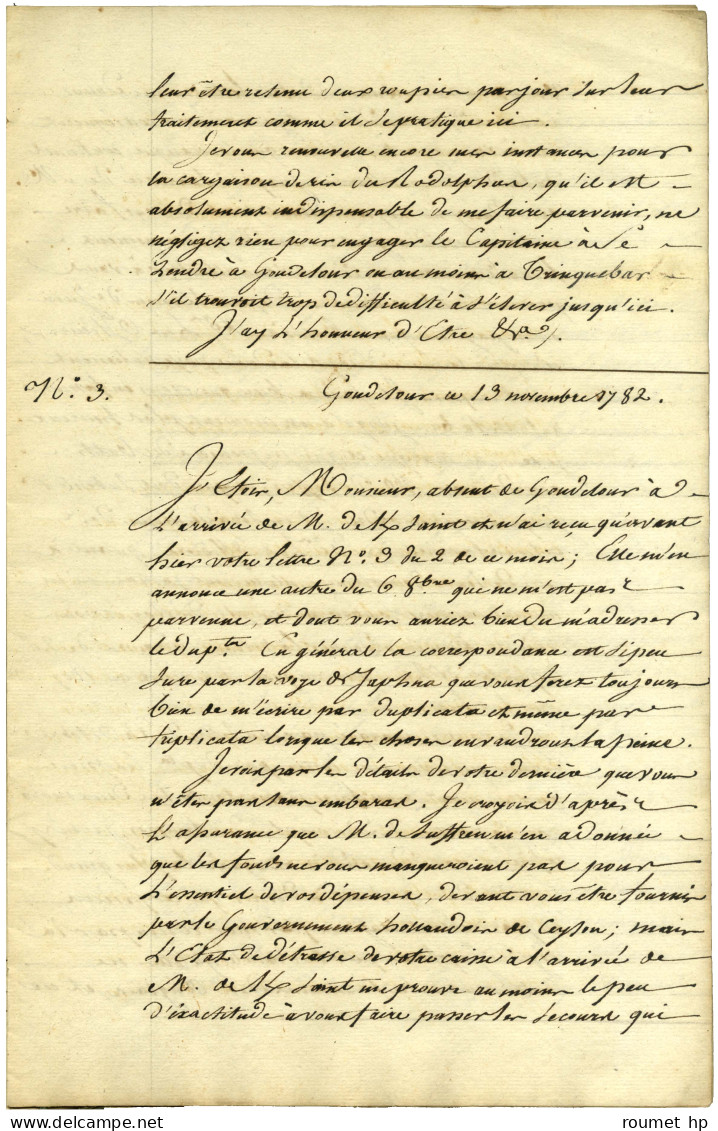 leur être retenu deux roupies par jour sur leur
traitement comme il se pratique ici.
Je vous renouvelle encore mes instances pour
la cargaison de ris du Rodolphus, qu'il est
absolument indispensable de me faire parvenir, ne
négligez rien pour engager le Capitaine à se
rendre à Goudelour ou au moins à Trinquebar
s'il trouvoit trop de difficulté à s'élever jusqu'ici.
J'ay L'honneur d'Etre &ra./.
N.° 3.
Goudelour ce 13 novembre 1782.
J'Etois, Monsieur, absent de Goudelour à
L'arrivée de M. de Saint et n'ai reçu qu'avant
hier votre lettre N.° 3 du 2 de ce mois; Elle m'en
annonce une autre du 6 8.bre qui ne m'est pas
parvenue, et dont vous auriez bien du m'adresser
le dup.ta En général la correspondance est si peu
sure par la voye de Japhna que vous ferez toujours
bien de m'écrire par duplicata et même par
triplicata lorsque les choses en vaudront la peine.
Je vois par les détails de votre dernière que vous
n'étes pas sans embaras. Je croyois d'après
L'aparance que M. de Suffren m'en a donnée
que les fonds ne vous manqueroient pas pour
L'essentiel de vos dépenses, devant vous être fournis
par le Gouvernement hollandois de Ceylon; mais
L'Etat de détresse de votre caisse à l'arrivée de
M. de Saint me prouve au moins le peu
d'éxactitude à vous faire passer les secours qui
rumet hp